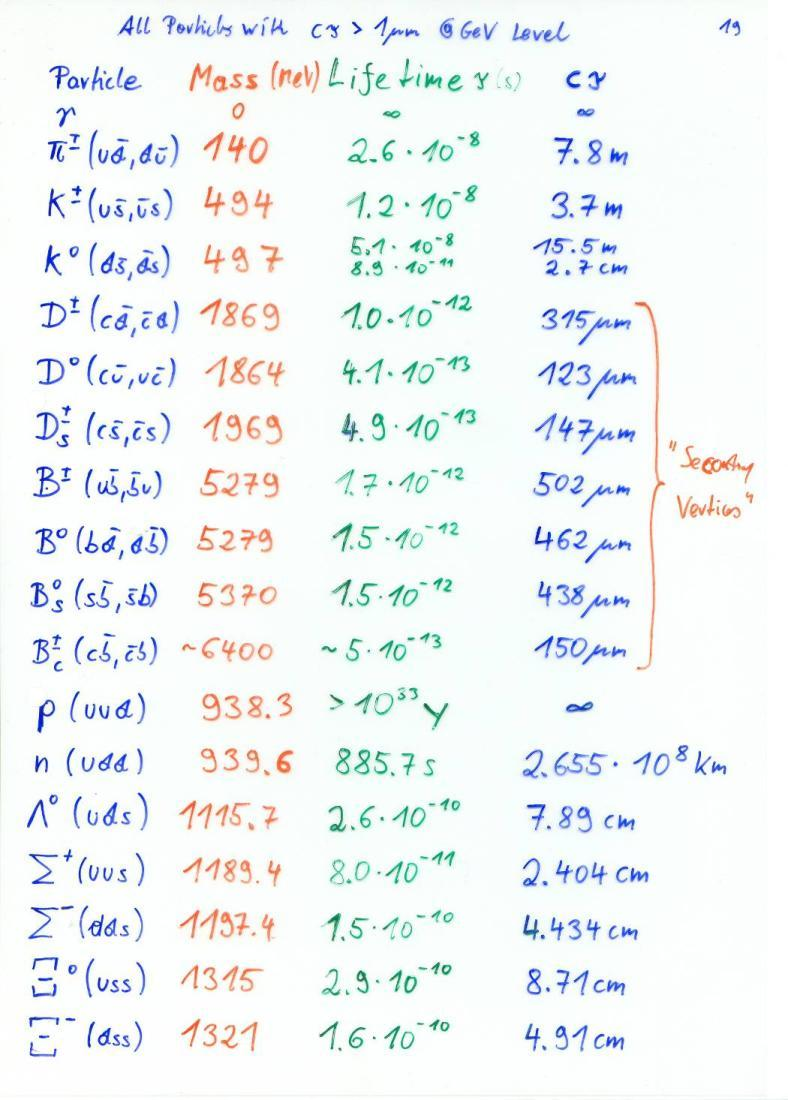 All Particles with cτ > 1μm @ GeV Level 19
Particle Mass (MeV) Life time τ(s) cτ
γ 0 ∞ ∞
π± (ud̄, dū) 140 2.6 · 10⁻⁸ 7.8 m
K± (us̄, ūs) 494 1.2 · 10⁻⁸ 3.7 m
K⁰ (ds̄, d̄s) 497 5.1 · 10⁻⁸ 15.5 m
8.9 · 10⁻¹¹ 2.7 cm
D± (cd̄, c̄d) 1869 1.0 · 10⁻¹² 315 μm
D⁰ (cū, uc̄) 1864 4.1 · 10⁻¹³ 123 μm
Ds± (cs̄, c̄s) 1969 4.9 · 10⁻¹³ 147 μm
B± (ub̄, b̄u) 5279 1.7 · 10⁻¹² 502 μm
"Secondary
Vertices"
B⁰ (bd̄, db̄) 5279 1.5 · 10⁻¹² 462 μm
Bs⁰ (sb̄, s̄b) 5370 1.5 · 10⁻¹² 438 μm
Bc± (cb̄, c̄b) ~6400 ~5 · 10⁻¹³ 150 μm
p (uud) 938.3 > 10³³ y ∞
n (udd) 939.6 885.7 s 2.655 · 10⁸ km
Λ⁰ (uds) 1115.7 2.6 · 10⁻¹⁰ 7.89 cm
Σ⁺ (uus) 1189.4 8.0 · 10⁻¹¹ 2.404 cm
Σ⁻ (dds) 1197.4 1.5 · 10⁻¹⁰ 4.434 cm
Ξ⁰ (uss) 1315 2.9 · 10⁻¹⁰ 8.71 cm
Ξ⁻ (dss) 1321 1.6 · 10⁻¹⁰ 4.91 cm